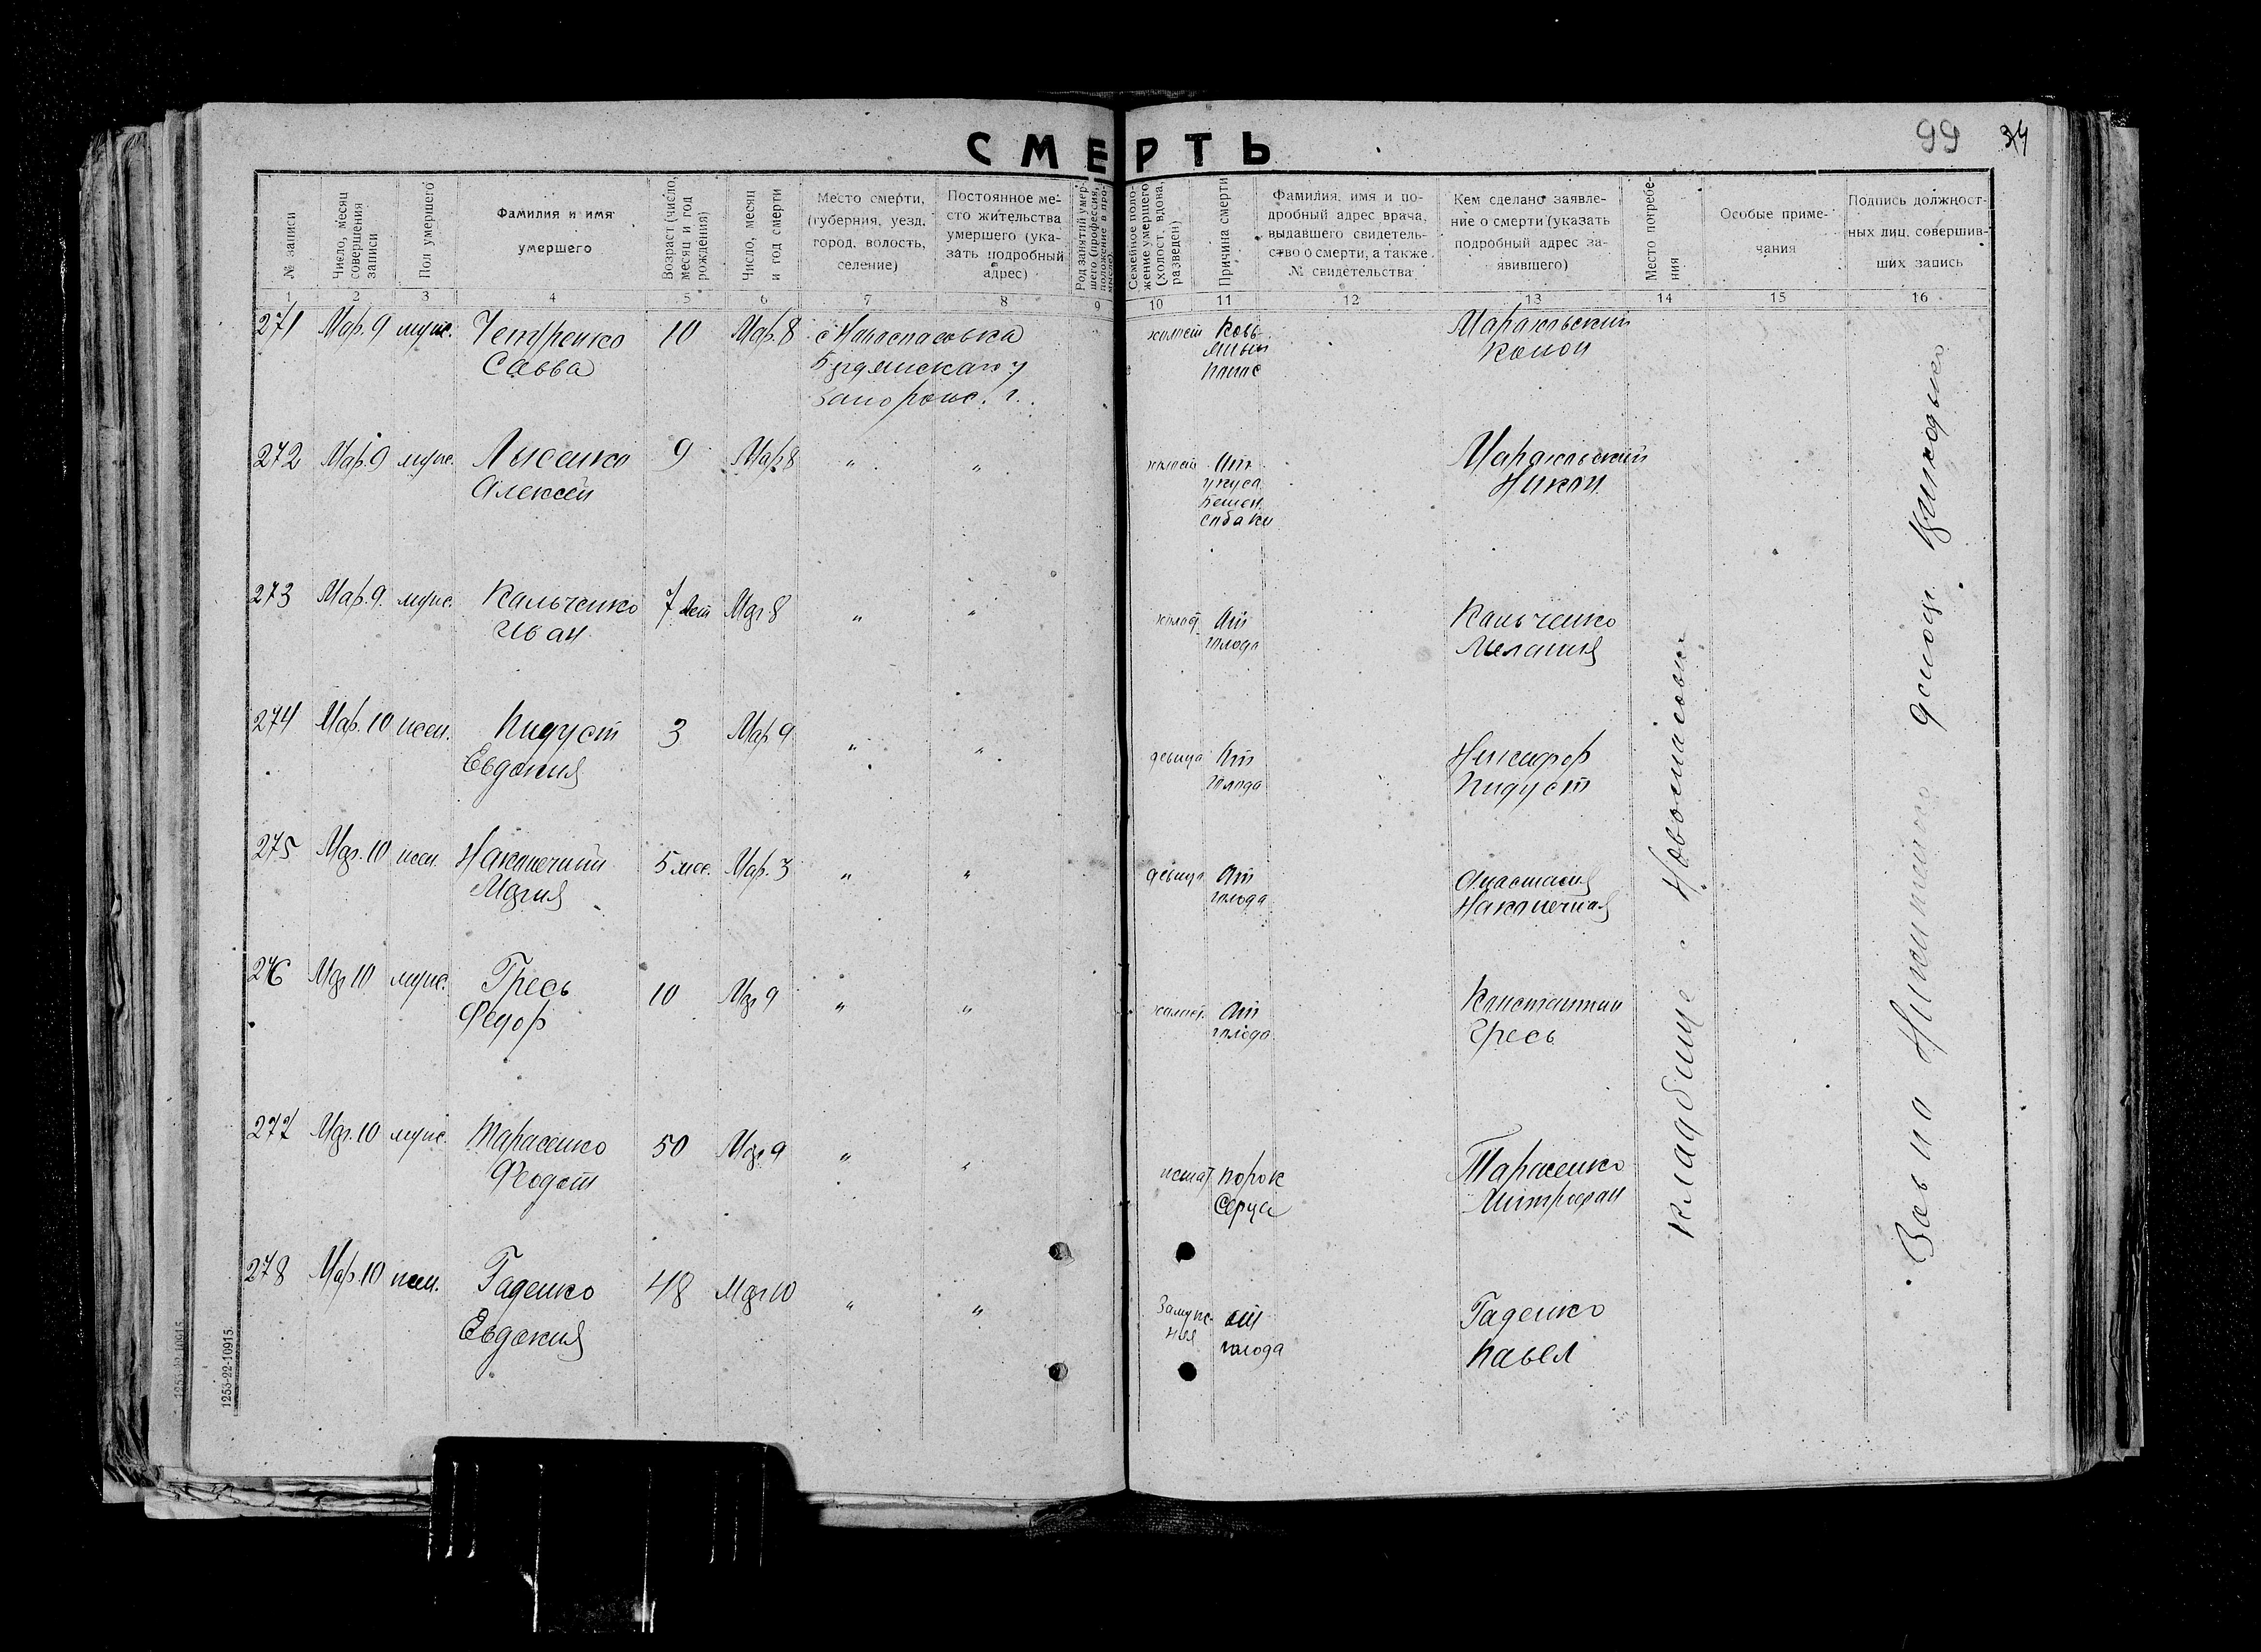 99 34
СМЕРТЬ
№ записи
Число, месяц
совершения
записи
Пол умершего
Фамилия и имя
умершего
Возраст (число,
месяц и год
рождения)
Число, месяц
и год смерти
Место смерти,
(губерния, уезд,
город, волость,
селение)
Постоянное ме-
сто жительства
умершего (ука-
зать подробный
адрес)
Род занятий умер-
шего (профессия,
положение в про-
мысле).
Семейное поло-
жение умершего
(холост, вдова,
разведен)
Причина смерти
Фамилия, имя и по-
дробный адрес врача,
выдавшего свидетель-
ство о смерти, а также
№ свидетельства
Кем сделано заявле-
ние о смерти (указать
подробный адрес за-
явившего)
Место погребе-
ния
Особые приме-
чания
Подпись должност-
ных лиц, совершив-
ших запись
1 2 3 4 5 6 7 8 9 10 11 12 13 14 15 16
271 Мар. 9 муж. 10 Мар. 8 с Новоспасовка холост
Савва
Бердянского у
Запорож. г.
Конон
272 Мар. 9 муж. Лысенко 9 Мар 8 " " холост От
Алексей
укуса
Бешен
собаки
Никон
273 Мар. 9. муж. Кальченко 7 лет Мар 8 " " холост От Кальченко
Иван голода Мелания
274 Мар. 10 жен. Пидуст 3 Мар 9 " " девица От Никифор
Евдокия голода Пидуст
275 Мар. 10 жен. Наконечний 5 мес. Мар. 3 " " девица От Анастасия
Мария голода Наконечная
276 Мар 10 муж. Гресь 10 Мар 9 " " холост От Константин
Федор голода Гресь
277 Мар. 10 муж. Тарасенко 50 Мар 9 " " женат порок Тарасенко
Феодот Серца Митрофан
278 Мар. 10 жен. Гаденко 48 Мар 10 " " Замуж- от Гаденко
няя
Евдокия голода Павел
кладбище с. Новоспасовки
1253-22-10915
1253-22-10915